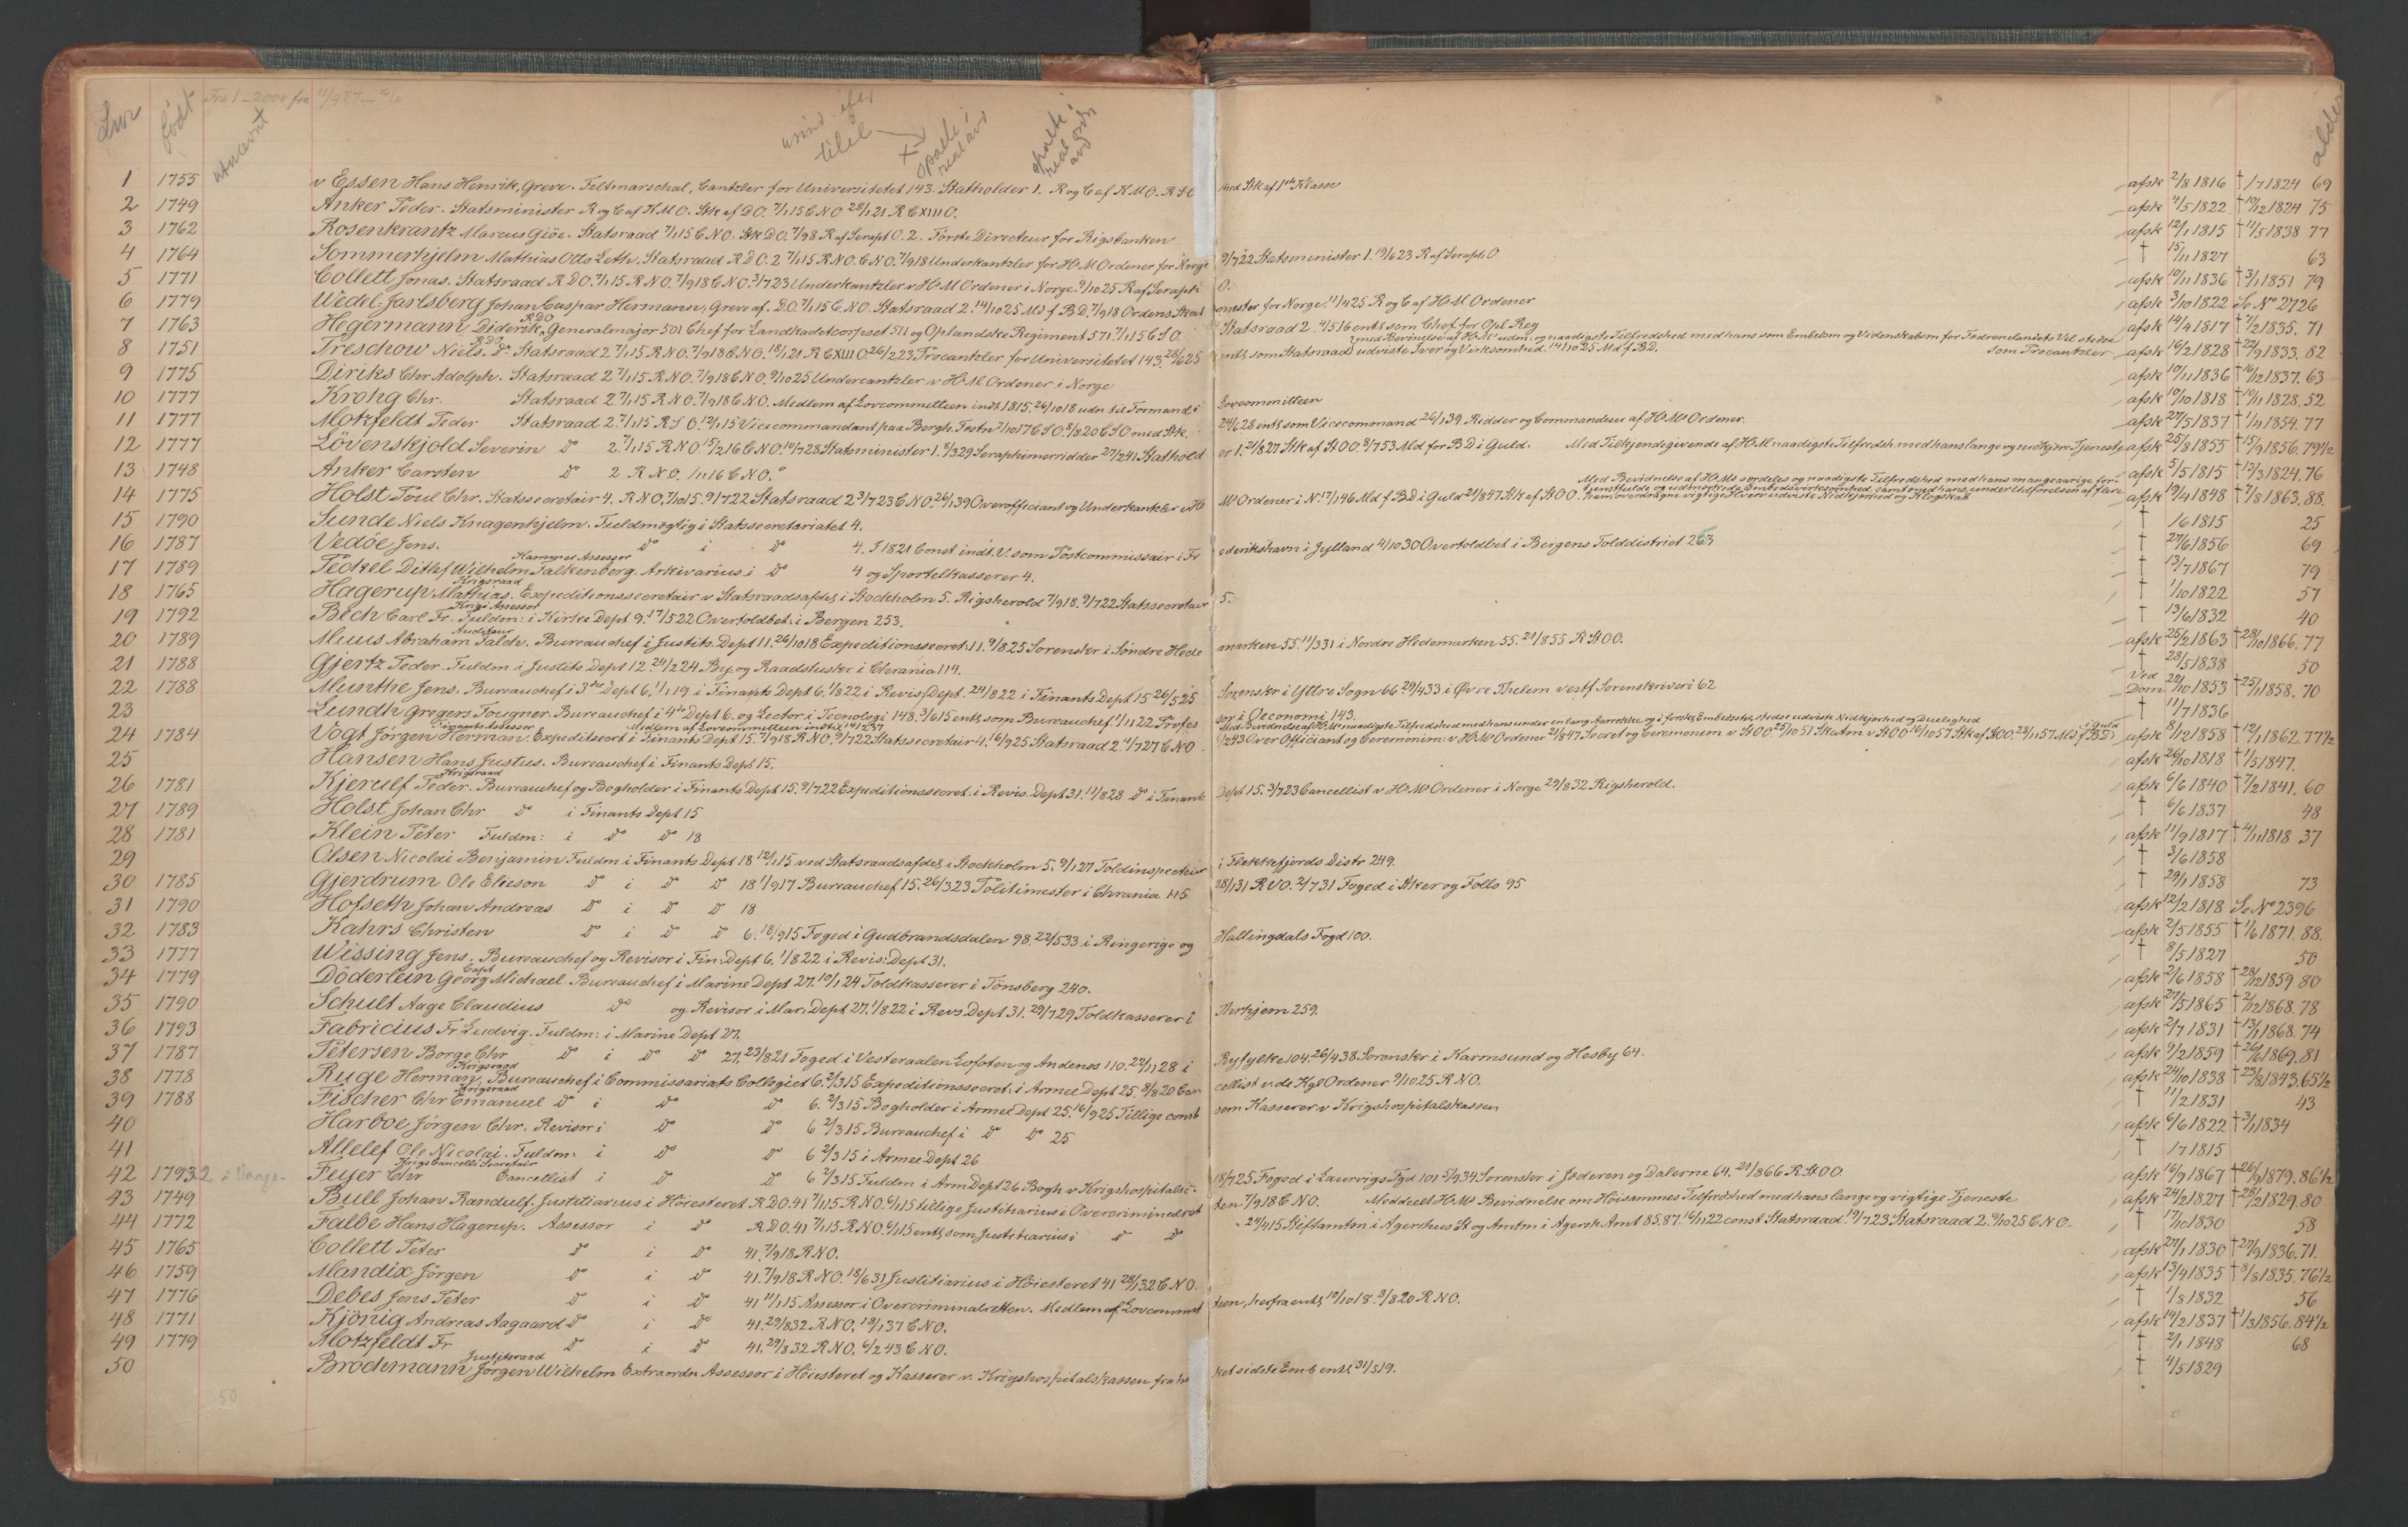 Lnr født Fra 1 - 2000 fra spalte i real avd spalte i real ords avd alder
1 1755 v Essen Hans Henrik, Greve. Feltmarschal, Cantzler for Universitetet 143. Statholder 1. R og C af K M O. R S O med Stk af 1ste Klasse afsk 2/8 1816 † 1/7 1824 69
2 1749 Anker Peder. Statsminister R og C af K M O. Stk af D O. 7/1 15 C N O 28/1 21 R C XIII O. afsk 4/5 1822 † 10/12 1824 75
3 1762 Rosenkrantz Marcus Giøe. Statsraad 7/1 15 C N O. Stk D O. 7/9 8 R af Seraph O. 2. Første Directeur for Rigsbanken afsk 12/1 1815 † 11/5 1838 77
4 1764 Sommerhjelm Mathias Otto Leth. Statsraad R D O. 2 7/1 15 R N O. C N O. 7/9 18 Underkantzler for H M Ordener for Norge 9/7 22 Statsminister 1. 19/6 23 R af Seraph O † 15/11 1827 63
5 1771 Collett Jonas. Statsraad R D O. 7/1 15 R N O. 7/9 18 C N O. 3/7 23 Underkantzler v H M Ordener i Norge. 9/10 25 R af Seraph O. afsk 10/11 1836 † 3/1 1851 79
6 1779 Wedel Jarlsberg Johan Caspar Hermann, Greve af. D O. 7/1 15 C N O. Statsraad 2. 14/10 25 Ml f B D. 7/9 18 Ordens Skatmester for Norge. 11/4 25 R og C af H M Ordener afsk 3/10 1822 Se No 2726
7 1763 Hegermann Diderik, R D O Generalmajor 501 Chef for Landkadetcorpset 511 og Oplandske Regiment 571. 7/1 15 C S O. Statsraad 2. 4/5 16 entl som Chef for Opl Reg afsk 14/4 1817 † 7/2 1835. 71
8 1751 Treschow Niels. R D O Do Statsraad 2 7/1 15 R N O. 7/9 18 C N O. 18/1 21 R C XIII O 26/2 23 Procantzler for Universitetet 143. 28/6 25 entl som Statsraad med Bevidnelse af H M's udm: og naadigste Tilfredshed med hans som Embedsm og Videnskabsm for Fædrenelandets Vel stedse udviste Iver og Virksomhed. 14/10 25 Ml f B D. som Procantzler afsk 16/2 1828 † 22/9 1833. 82
9 1775 Diriks Chr Adolph. Statsraad 2 7/1 15 R N O. 7/9 18 C N O. 9/10 25 Undercantzler v H M Ordener i Norge afsk 10/11 1836 † 16/12 1837. 63
10 1777 Krohg Chr. Statsraad 2 7/1 15 R N O. 7/9 18 C N O. Medlem af Lovcommitteen indt 1815. 26/10 18 udn til Formand i Lovcommitteen afsk 19/10 1818 † 10/11 1828. 52
11 1777 Motzfeldt Peder Statsraad 2. 7/1 15 R S O. 12/1 15 Vicecommandant paa Bergh. Festn 7/10 17 C S O. 8/8 20 C S O med Stk. 24/6 28 entl som Vicecommand 26/1 39. Ridder og Commandeur af H M's Ordener. afsk 27/5 1837 † 1/4 1854. 77
12 1777 Lövenskjold Severin Do 2. 7/1 15 R N O 15/2 16 C N O. 19/7 28 Statsminister 1. 8/3 29 Seraphimerridder 27/2 41 Statholder 1. 21/8 27 Stk af St O O. 8/7 53 Mld for B D i Guld. Med Tilkjendegivende af H M naadigste Tilfredsh. med hans lange og nidkjær Tjeneste afsk 25/8 1855 † 15/9 1856. 79 1/2
13 1748 Anker Carsten Do 2 R N O. 1/1 16 C N O. afsk 5/5 1815 † 13/3 1824. 76
14 1775 Holst Poul Chr. Statssecretair 4. R N O. 7/10 15. 9/7 22 Statsraad 2 3/7 23 C N O. 26/1 39 Overofficiant og Underkantzler v H M's Ordener i N. 17/1 46 Ml f B D i Guld 21/8 47 Stk af St O O. Med Bevidnelse af H M's særdeles og naadigste Tilfredshed med hans mangeaarige fortjenstfulde og udmærkede Embedsvirksomhed, samt med hans under Udførelsen af flere ham overdragne vigtige Hverv udviste Nidkjærhed og Klogskab afsk 19/4 1848 † 7/8 1863. 88.
15 1790 Sunde Niels Knagenhjelm. Fuldmægtig i Statssecretariatet 4. † 1/6 1815 25
16 1787 Vedøe Jens. Do i Do 4. I 1821 Const indt. V. som Postcommissair i Frederikshavn i Jylland 4/10 30 Overtoldbet i Bergens Tolddistrict 263 † 27/6 1856 69
17 1789 Peckel Ditlef Wilhelm Falkenberg. Kammer Assessor Arkivarius i Do 4 og Sportelkasserer 4. † 13/7 1867 79
18 1765 Hagerup Mathias. Krigsraad Expeditionssecretair v Statsraadsafdel i Stockholm 5. Rigsherold 7/9 18. 9/7 22 Statssecretair 5. † 1/10 1822 57
19 1792 Bech Carl Fr. Krigs Assessor Fuldm: i Kirke Dept 9. 17/5 22 Overtoldbet: i Bergen 253. † 13/6 1832 40
20 1789 Muus Abraham Falch. Auditeur Bureauchef i Justits. Dept 11. 26/10 18 Expeditionssecret: 11. 9/8 25 Sorenskr i Søndre Hedemarken 55. 11/3 31 i Nordre Hedemarken 55. 21/8 55 R St O O. afsk 25/2 1863 † 28/10 1866. 77
21 1788 Gjertz Peder. Fuldm i Justits Dept 12 24/2 24 By og Raadstuskr. i Chrania 114. † 23/5 1838 50
22 1788 Munthe Jens. Bureauchef i 3die Dept 6. 1/1 19 i Finants Dept 6. 1/8 22 i Revis: Dept. 24/8 22 i Finants Dept 15 26/5 25 Sorenskr i Yttre Sogn 66 29/4 33 i Øvre Thelem vestf Sorenskriveri 62 Ved Dom 20/10 1853 † 25/1 1858. 70
23 Lundh Gregers Fougner. Bureauchef i 4de Dept 6. og Lector i Tecnologi 148. 3/6 15 entl som Bureauchef. 1/11 22 Professor i Oeconomi 143. † 11/7 1836
24 1784 Vogt Jørgen Herman. Finants Assessor Expeditsecrt i Finants Dept 15. 7/9 18 R N O. 9/7 22 Statssecretair 4. 16/9 25 Statsraad 2 4/7 27 C N O Medlem af Lovcommitteen indtil 14/1 27. 1/2 43 Over Officiant og Ceremonim: v H M's Ordener 21/8 47 Secret og Ceremonim v St O O 25/10 51 Skatm v St O O 16/10 57 Stk af St O O. 28/11 57 Ml f B D i Guld Med Bevidnelse af H M's naadigste Tilfredshed med hans under en lang Aarrække og i forskj Embedsstil. stedse udviste Nidkjærhed og Duelighed afsk 8/12 1858 † 12/1 1862. 77 1/2
25 Hansen Hans Justus. Bureauchef i Finants Dept 15. afsk 26/10 1818 † 1/5 1847.
26 1781 Kjerulf Peder. Krigsraad Bureauchef og Bogholder i Finants Dept 15. 9/7 22 Expeditionssecret: i Revis. Dept 31. 11/8 28 Do i Finants Dept 15. 3/7 23 Cancellist v H M's Ordener i Norge 29/8 32 Rigsherold. afsk 6/6 1840 † 7/2 1841. 60
27 1789 Holst Johan Chr Do i Finants Dept 15 † 6/6 1837 48
28 1781 Klein Peter Fuldm: i Do Do 18 afsk 11/9 1817 † 4/11 1818 37
29 Olsen Nicolai Benjamin Fuldm i Finants Dept 18 12/1 15 ved Statsraadsafdel i Stockholm 5. 9/1 27 Toldinspecteur i Flekkefjords Distr 249. † 3/6 1858
30 1785 Gjerdrum Ole Elieson Do i Do Do 18 1/9 17 Bureauchef 15. 26/3 23 Politimester i Chrania 115 28/1 31 R V O. 2/7 31 Foged i Aker og Follo 95 † 29/1 1858 73
31 1790 Hofseth Johan Andreas Do i Do Do 18 afsk 12/2 1818 Se No 2396
32 1783 Kahrs Christen Do i Do Do 6. 18/9 15 Foged i Gudbrandsdalen 98. 22/5 33 i Ringerige og Hallingdals Fogd 100. afsk 2/5 1855 † 1/6 1871. 88.
33 1777 Wissing Jens. Bureauchef og Revisor i Fin: Dept 6. 1/8 22 i Revis: Dept 31. † 8/5 1827 50
34 1779 Döderlein Georg Michael. Capt Bureauchef i Marine Dept 27. 19/1 24 Toldkasserer i Tönsberg 240. afsk 2/6 1858 † 28/12 1859 80
35 1790 Schult Aage Claudius Do og Revisor i Mar: Dept 27. 1/8 22 i Revs Dept 31. 29/7 29 Toldkasserer i Thrhjem 259. afsk 27/5 1865 † 2/12 1868. 78
36 1793 Fabricius Fr Ludvig. Fuldm: i Marine Dept 27. afsk 2/7 1831 † 13/1 1868. 74
37 1787 Petersen Borge Chr Do i Do Do 27. 23/8 21 Foged i Vesteraalen Lofoten og Andenes 110. 22/11 28 i Ryfylke 104. 26/4 38 Sorenskr i Karmsund og Hesby 64. afsk 9/2 1859 † 26/6 1869. 81
38 1778 Ruge Herman, Krigsraad Bureauchef i Commissariats Collegiet 6. 2/3 15 Expeditionssecret: i Armee Dept 25. 8/8 20 Cancellist v de Kgl Ordener 9/10 25 R N O. afsk 24/10 1838 † 23/8 1843. 65 1/2
39 1788 Fischer Chr Emanuel Krigsraad Do i Do Do 6. 2/3 15 Bogholder i Armee Dept 25. 16/9 25 Tillige const som Kasserer v Krigshospitalskassen † 11/2 1831 43
40 Harboe Jörgen Chr. Revisor i Do Do 6 2/3 15 Bureauchef i Do Do 25 afsk 6/6 1822 † 3/1 1834
41 Allelef Ole Nicolai. Fuldm: i Do Do 6 2/3 15 i Armee Dept 26 † 1/7 1815
42 1793 Feyer Chr Krigs Cancelli Secretair Cancellist i Do Do 6 2/3 15 Fuldm i Arm Dept 26 Bogh v Krigshospitalsk. 18/7 25 Foged i Laurvigs Fgd 101 5/9 34 Sorenskr i Jæderen og Dalerne 64. 21/8 66 R St O O. afsk 16/9 1867 † 26/9 1879. 86 1/2
43 1749 Bull Johan Randulf. Justitiarius i Höiesteret R D O. 41 7/1 15 R N O. 6/1 15 tillige Justitiarius i Overcriminalretten 7/9 18 C N O. Meddeelt H M's Bevidnelse om Höisammes Tilfredshed med hans lange og vigtige Tjeneste afsk 24/2 1827 † 28/2 1829. 80
44 1772 Falbe Hans Hagerup. Assessor i Do R D O. 41 7/1 15 R N O. 6/1 15 entl som Justitiarius i Do Do 24/4 15 Stiftamtm i Agershus St og Amtm i Agersh Amt 85. 87. 16/11 22 const Statsraad. 19/7 23 Statsraad 2. 9/10 25 C N O. † 17/10 1830 58
45 1765 Collett Peter Do i Do 41. 7/9 18 R N O. afsk 27/1 1830 † 27/9 1836. 71.
46 1759 Mandix Jörgen Do i Do 41. 7/9 18 R N O. 18/6 31 Justitiarius i Höiesteret 41 28/1 32 C N O. afsk 13/4 1835 † 8/8 1835. 76 1/2
47 1776 Debes Jens Peter Do i Do 41 11/1 15 Assessor i Overcriminalretten. Medlem af Lovcommitteen, herfra entl 19/10 18. 3/8 20 R N O. † 1/8 1832 56
48 1771 Kjönig Andreas Aagaard Do i Do 41. 29/8 32 R N O. 19/1 37 C N O. afsk 14/2 1837 † 1/3 1856. 84 1/2
49 1779 Motzfeldt Fr Do i Do 41. 29/8 32 R N O. 6/2 43 C N O. † 2/1 1848 68
50 Brochmann Jörgen Wilhelm Justitsraad Extraordn Assessor i Höiesteret og Kasserer v. Krigshospitalskassen fra hvilket sidste Emb entl 31/5 19. † 4/5 1829
50